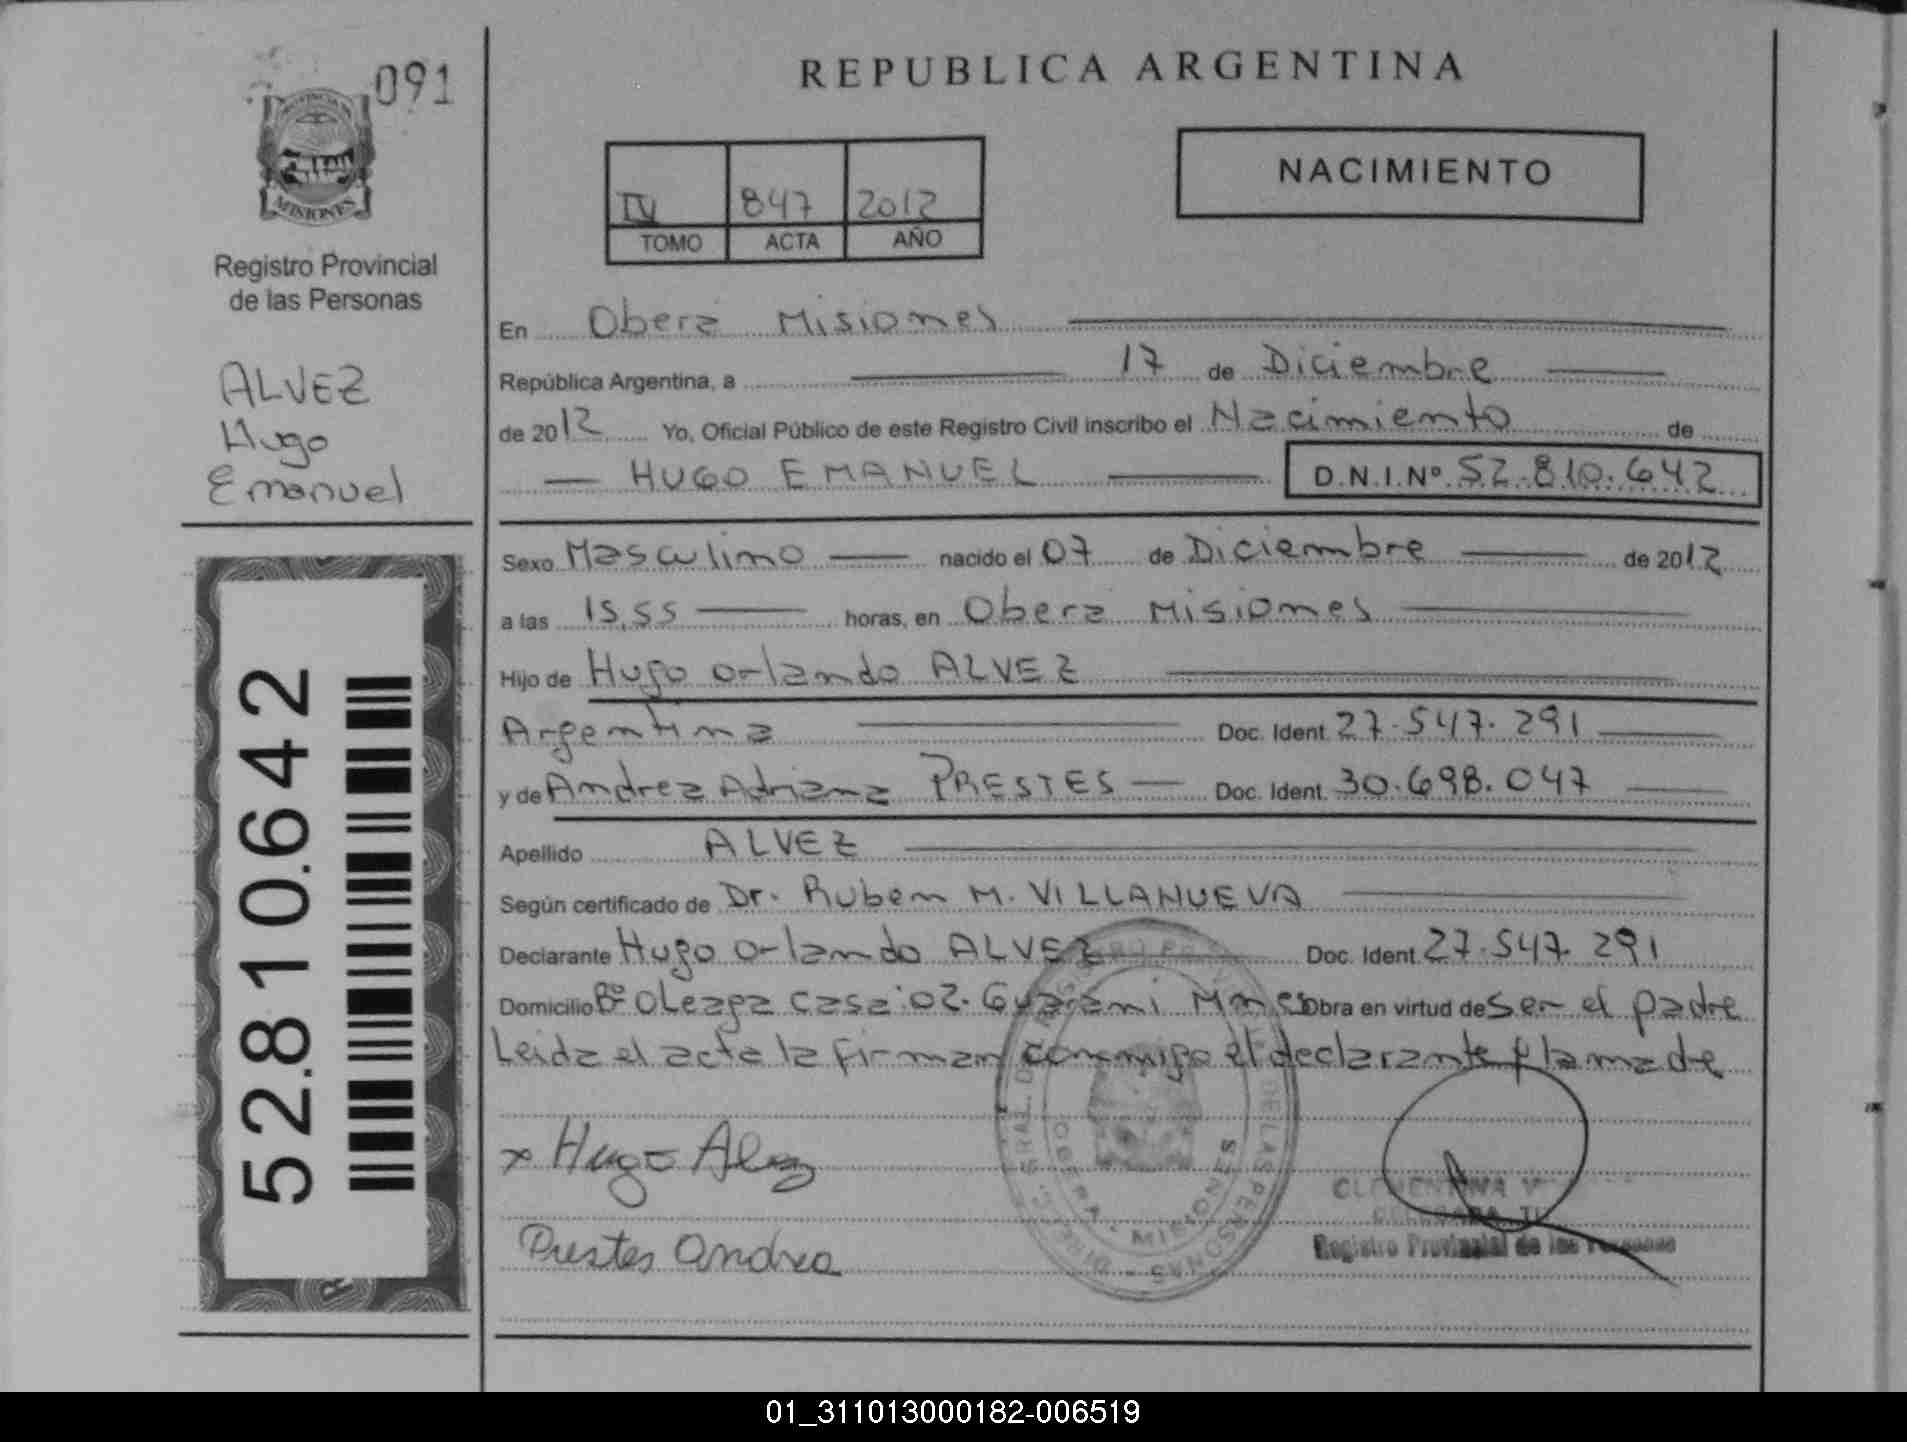 091
PROVINCIA DE
MISIONES
Registro Provincial
de las Personas
ALVEZ
Hugo
Emanuel
52.810.642
REPUBLICA ARGENTINA
NACIMIENTO
IV 847 2012
TOMO ACTA AÑO
En Obera Misiones
República Argentina, a 17 de Diciembre
de 2012 Yo, Oficial Público de este Registro Civil inscribo el Nacimiento de
HUGO EMANUEL D.N.I.Nº 52.810.642
Sexo Masculino nacido el 07 de Diciembre de 2012
a las 15,55 horas, en Obera Misiones
Hijo de Hugo Orlando ALVEZ
Argentina Doc. Ident. 27.547.291
y de Andrea Adriana PRESTES Doc. Ident. 30.698.047
Apellido ALVEZ
Según certificado de Dr. Ruben M. VILLANUEVA
Declarante Hugo Orlando ALVEZ Doc. Ident. 27.547.291
Domicilio Bº Oleaga casa:02. Guarani Mnes Obra en virtud de Ser el padre
Leida el acta la firman conmigo el declarante y la madre
x Hugo Alvez
Prestes Andrea
OBERA - MISIONES
DE LAS PERSONAS
Registro Provincial de las Personas
01_311013000182-006519